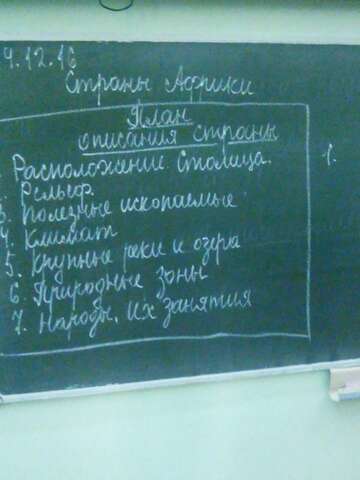 9.12.16
Страны Африки
План
описания страны
Расположение. Столица.
Рельеф
3. Полезные ископаемые
4. Климат
5. Крупные реки и озера
6. Природные зоны
7. Народы, их занятия
1.